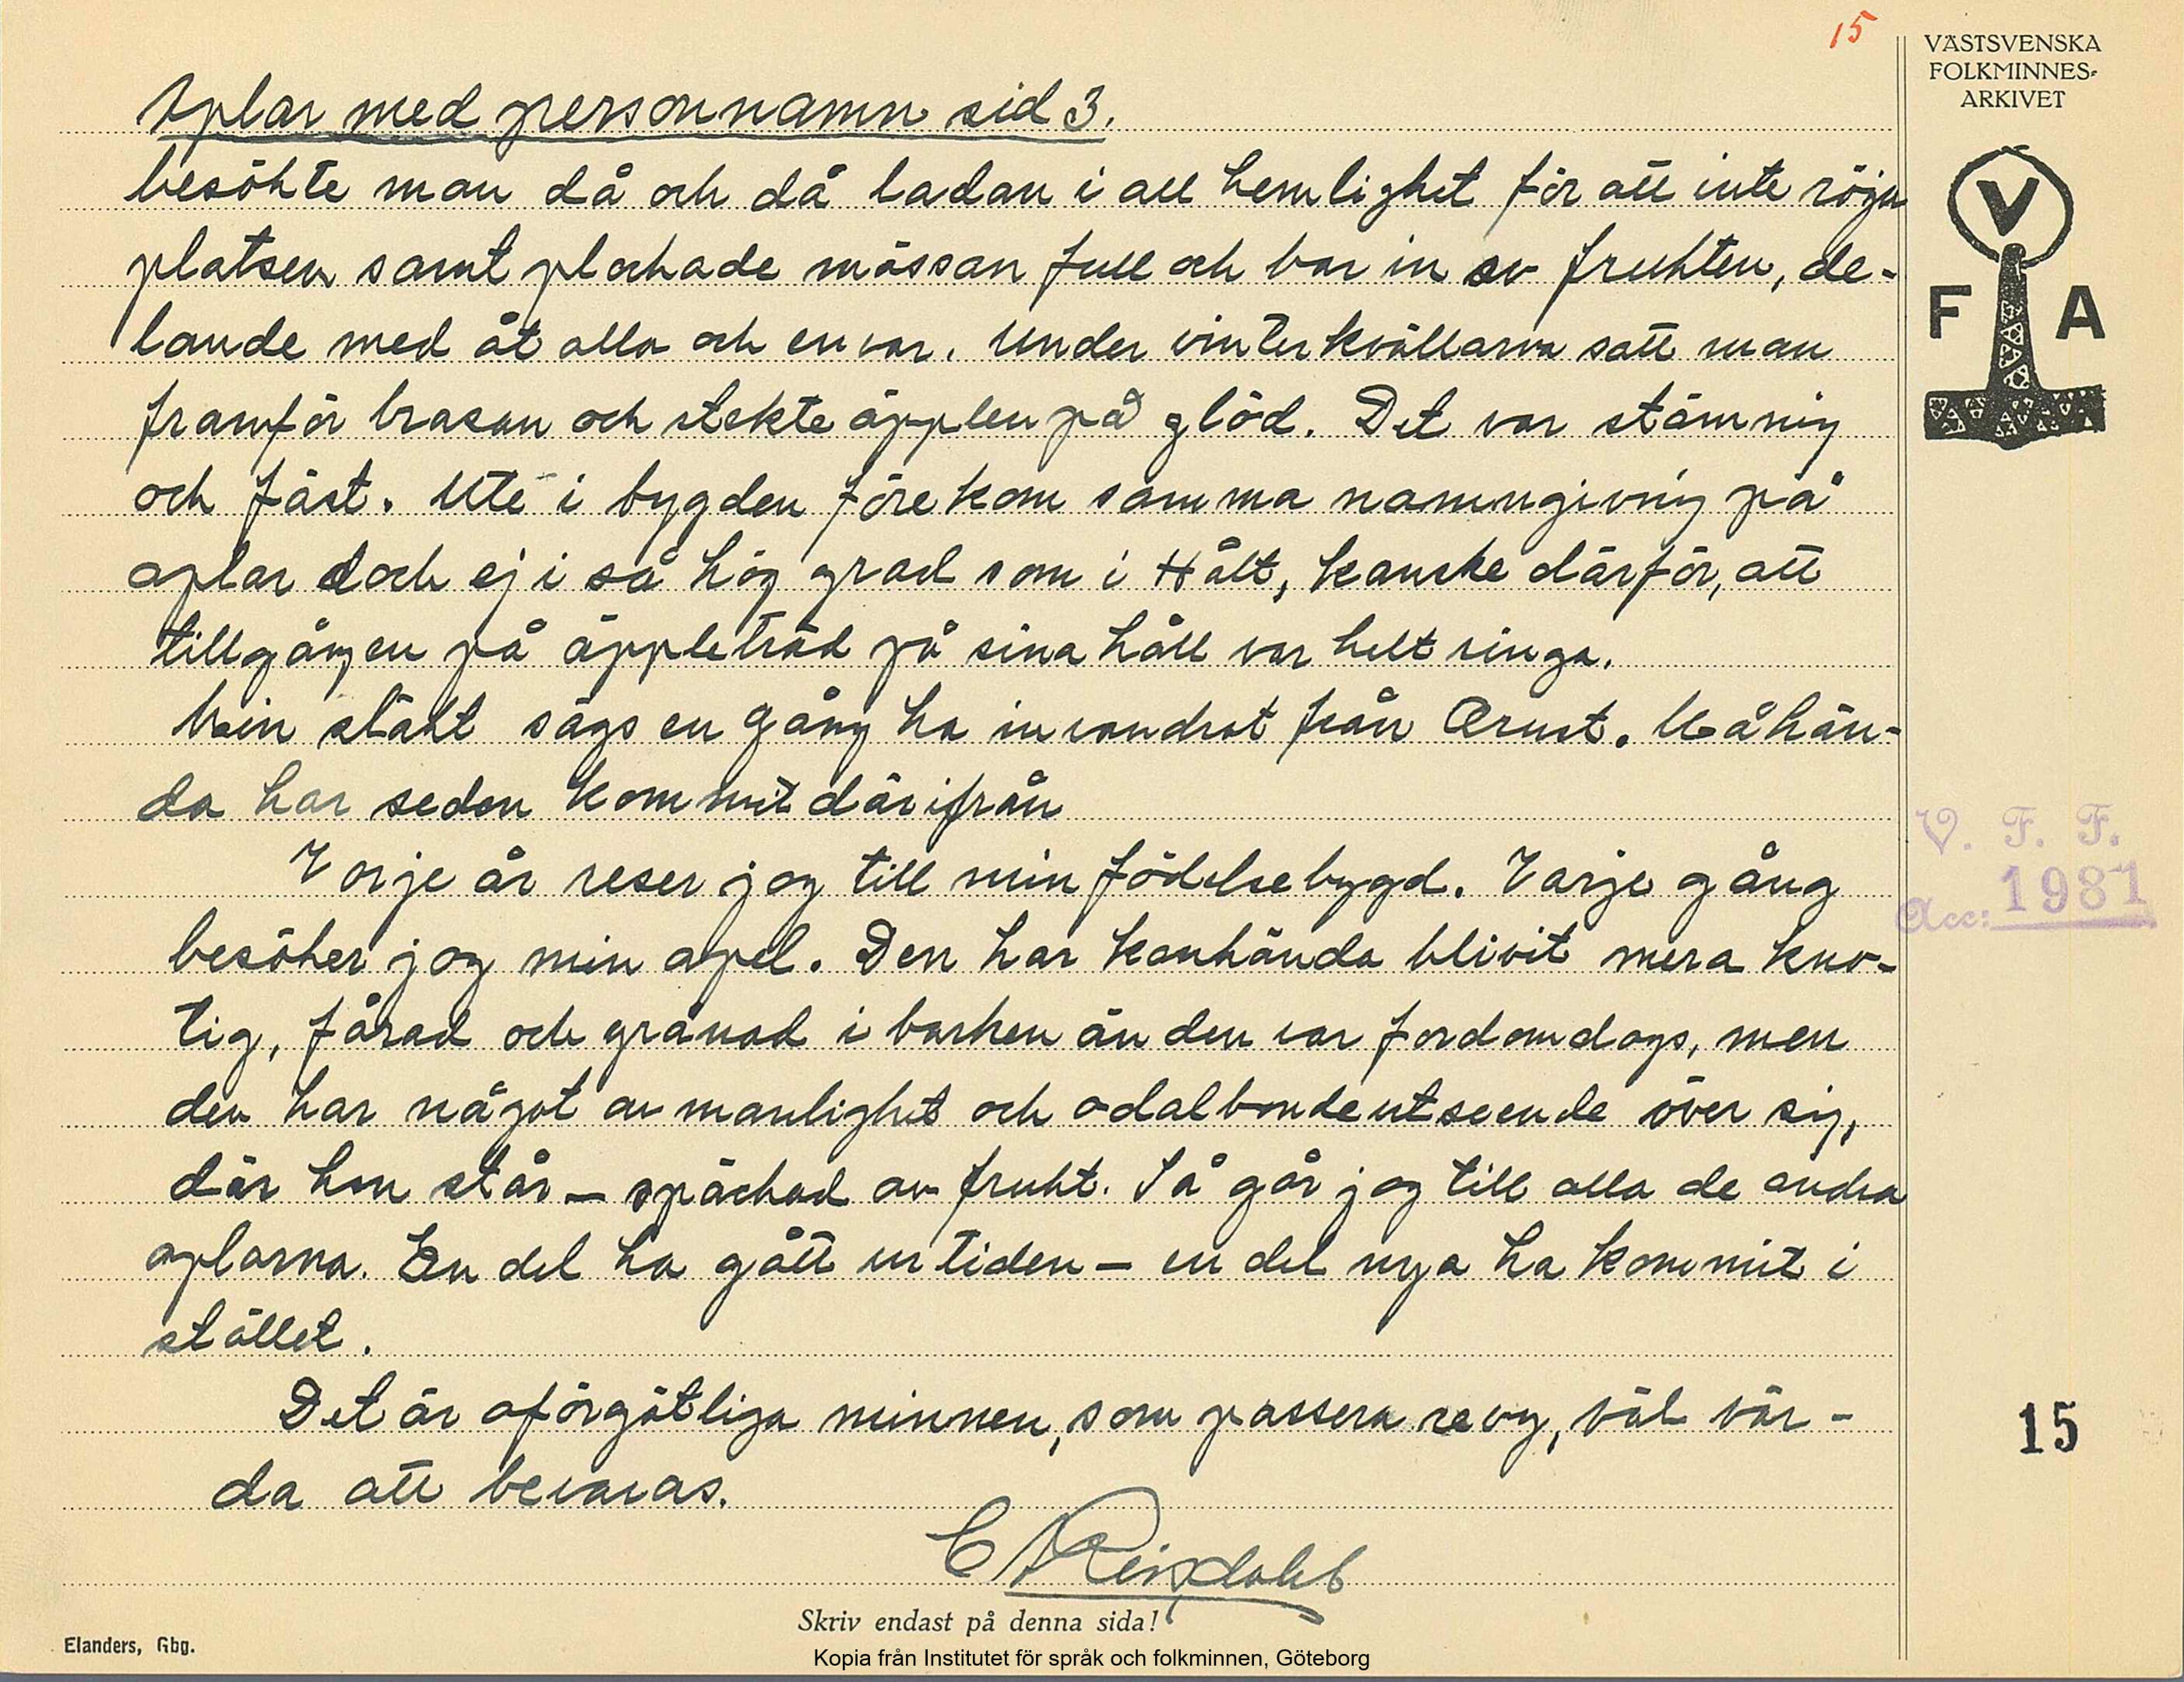 15
VÄSTSVENSKA
FOLKMINNES-
ARKIVET
V
F A
Aplar med personnamn sid 3.
besökte man då och då ladan i all hemlighet för att inte röja
platsen samt plockade mössan full och bar in av frukten, de-
lande med åt alla och envar. Under vinterkvällarna satt man
framför brasan och stekte äpplen på glöd. Det var stämning
och fäst. Ute i bygden förekom samma namngivning på
aplar doch ej i så hög grad som i Hålt, kanske därför, att
tillgången på äppleträd på sina håll var helt ringa.
Min släkt sägs en gång ha invandrat från Orust. Måhän-
da har seden kommit därifrån
Varje år reser jag till min födelsebygd. Varje gång
besöker jag min apel. Den har kanhända blivit mera kno-
tig, fårad och grånad i barken än den var fordomdags, men
den har något av manlighet och odalbondeutseende över sig,
där hon står – späckad av frukt. Så går jag till alla de andra
aplarna. En del ha gått ur tiden – en del nya ha kommit i
stället.
Det är oförgätliga minnen, som passera revy, väl vär-
da att bevaras.
V. F. F.
Acc: 1981
15
Skriv endast på denna sida!
Elanders, Gbg.
Kopia från Institutet för språk och folkminnen, Göteborg